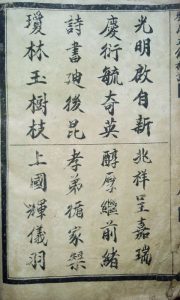 光明啟自新 兆祥呈嘉瑞
慶衍毓奇英 醇厚繼前緒
詩書迪後昆 孝弟循家榘
瓊林玉樹枝 上國輝儀羽